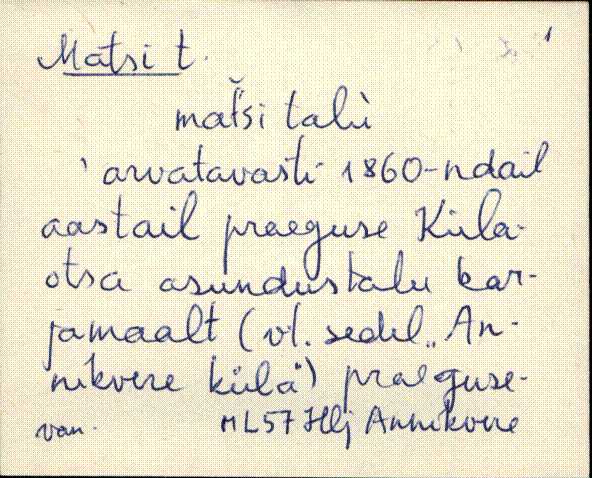 Matsi t. 1
mat̆si talu̇̀
arvatavasti 1860-ndail
aastail praeguse Küla-
otsa asundustalu kar-
jamaalt (vt. sedel „An-
nikvere küla") praeguse-
van. ML57 Hlj Annikvere